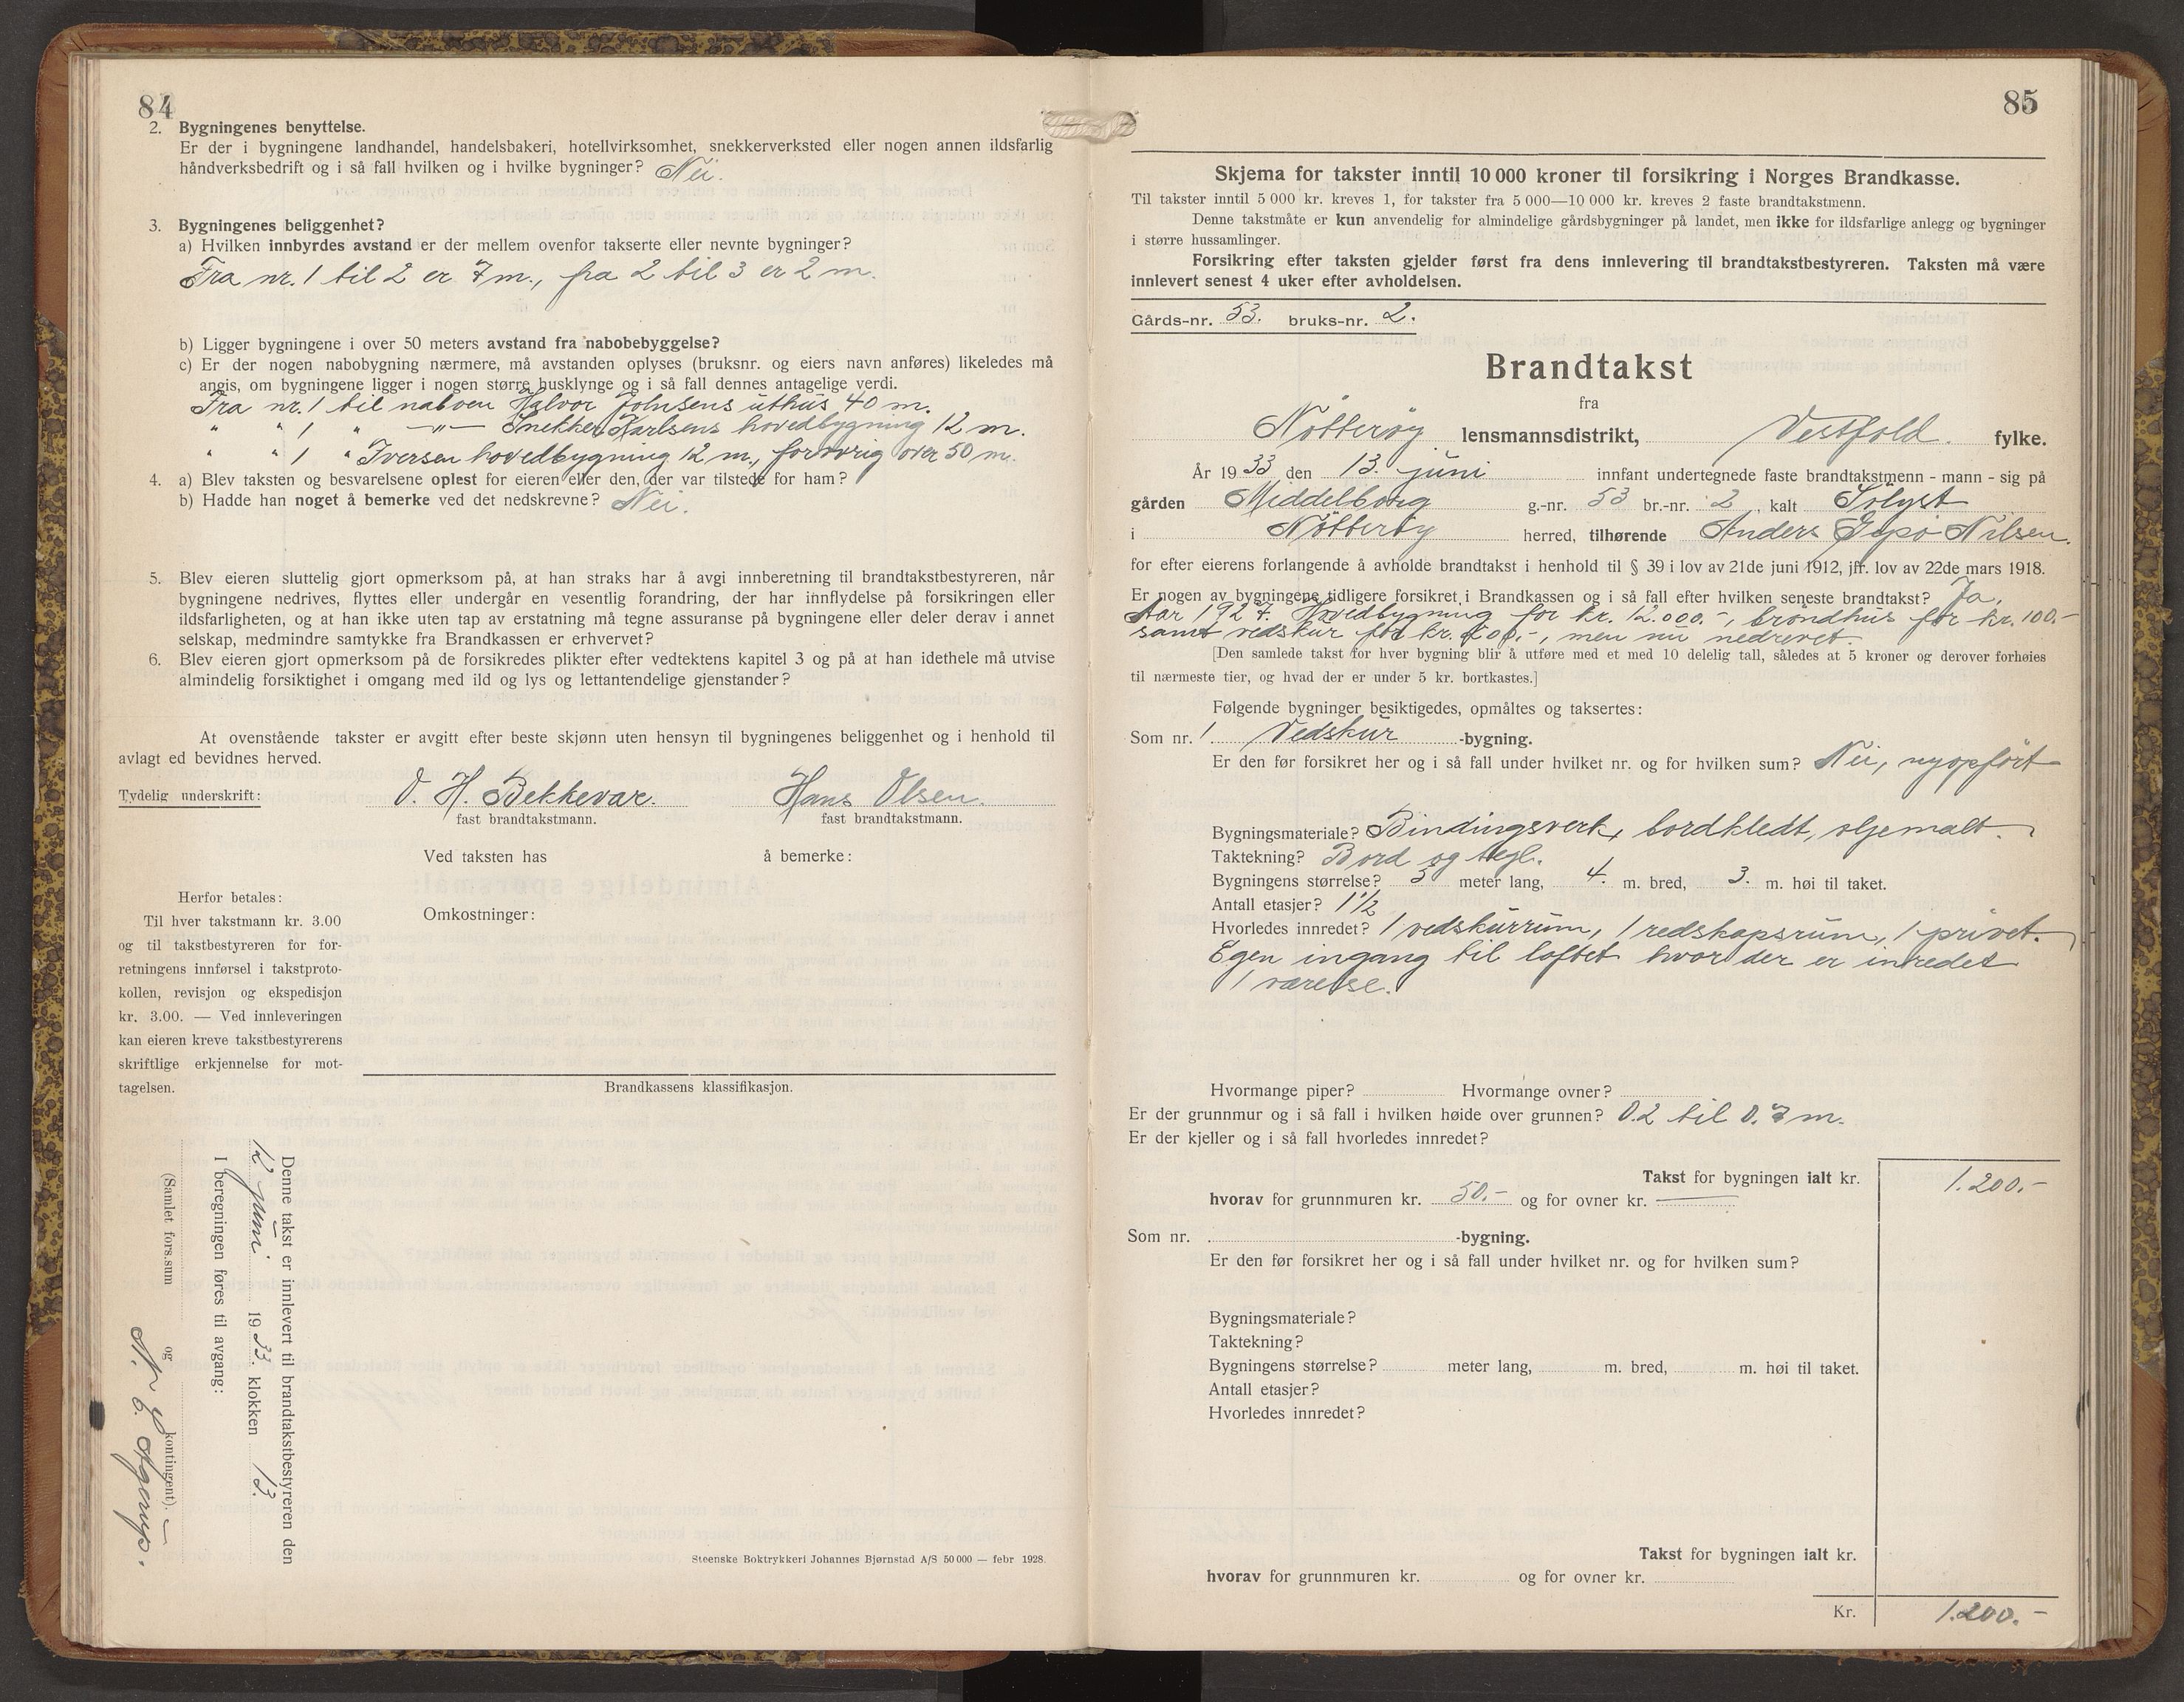 84
2. Bygningenes benyttelse.
Er der i bygningene landhandel, handelsbakeri, hotellvirksomhet, snekkerverksted eller nogen annen ildsfarlig
håndverksbedrift og i så fall hvilken og i hvilke bygninger? Nei.
3. Bygningenes beliggenhet?
a) Hvilken innbyrdes avstand er der mellem ovenfor takserte eller nevnte bygninger?
Fra nr. 1 til 2 er 7 m., fra 2 til 3 er 2 m.
b) Ligger bygningene i over 50 meters avstand fra nabobebyggelse?
c) Er der nogen nabobygning nærmere, må avstanden oplyses (bruksnr. og eiers navn anføres) likeledes må
angis, om bygningene ligger i nogen større husklynge og i så fall dennes antagelige verdi.
Fra nr. 1 til naboen Halvor Johnsens uthus 40 m.
" " 1 " —"— Snekker Karlsens hovedbygning 12 m.
" " 1 " Iversen hovedbygning 12 m., forøvrig over 50 m.
4. a) Blev taksten og besvarelsene oplest for eieren eller den, der var tilstede for ham?
b) Hadde han noget å bemerke ved det nedskrevne? Nei.
5. Blev eieren sluttelig gjort opmerksom på, at han straks har å avgi innberetning til brandtakstbestyreren, når
bygningene nedrives, flyttes eller undergår en vesentlig forandring, der har innflydelse på forsikringen eller
ildsfarligheten, og at han ikke uten tap av erstatning må tegne assuranse på bygningene eller deler derav i annet
selskap, medmindre samtykke fra Brandkassen er erhvervet?
6. Blev eieren gjort opmerksom på de forsikredes plikter efter vedtektens kapitel 3 og på at han idethele må utvise
almindelig forsiktighet i omgang med ild og lys og lettantendelige gjenstander?
At ovenstående takster er avgitt efter beste skjønn uten hensyn til bygningenes beliggenhet og i henhold til
avlagt ed bevidnes herved.
Tydelig underskrift: O. H. Bekkevar. Hans Olsen.
fast brandtakstmann. fast brandtakstmann.
Ved taksten has å bemerke:
Omkostninger:
Herfor betales:
Til hver takstmann kr. 3.00
og til takstbestyreren for for-
retningens innførsel i takstproto-
kollen, revisjon og ekspedisjon
kr. 3.00. — Ved innleveringen
kan eieren kreve takstbestyrerens
skriftlige erkjennelse for mot-
tagelsen.
Brandkassens klassifikasjon.
Denne takst er innlevert til brandtakstbestyreren den
12 juni 1933. klokken 13.
I beregningen føres til avgang:
(Samlet fors.sum og kontingent).
Agerup.
Steenske Boktrykkeri Johannes Bjørnstad A/S 50 000 — febr 1928.
85
Skjema for takster inntil 10 000 kroner til forsikring i Norges Brandkasse.
Til takster inntil 5 000 kr. kreves 1, for takster fra 5 000—10 000 kr. kreves 2 faste brandtakstmenn.
Denne takstmåte er kun anvendelig for almindelige gårdsbygninger på landet, men ikke for ildsfarlige anlegg og bygninger
i større hussamlinger.
Forsikring efter taksten gjelder først fra dens innlevering til brandtakstbestyreren. Taksten må være
innlevert senest 4 uker efter avholdelsen.
Gårds-nr. 53. bruks-nr. 2.
Brandtakst
fra
Nötteröy lensmannsdistrikt, Vestfold. fylke.
År 1933 den 13. juni innfant undertegnede faste brandtakstmenn - mann - sig på
gården Middelborg g.-nr. 53 br.-nr. 2, kalt Solyst
i Nötteröy herred, tilhørende Anders Jepsø Nilsen.
for efter eierens forlangende å avholde brandtakst i henhold til § 39 i lov av 21de juni 1912, jfr. lov av 22de mars 1918.
Er nogen av bygningene tidligere forsikret i Brandkassen og i så fall efter hvilken seneste brandtakst? Ja,
Aar 1927. Hovedbygning for kr. 12.000.-, bröndhus for kr. 100.-
samt vedskur for kr. 600.-, men nu nedrevet.
[Den samlede takst for hver bygning blir å utføre med et med 10 delelig tall, således at 5 kroner og derover forhøies
til nærmeste tier, og hvad der er under 5 kr. bortkastes.]
Følgende bygninger besiktigedes, opmåltes og taksertes:
Som nr. 1 Vedskur -bygning.
Er den før forsikret her og i så fall under hvilket nr. og for hvilken sum? Nei, nyopfört
Bygningsmateriale? Bindingsverk, bordkledt, oljemalt.
Taktekning? Bord og tegl.
Bygningens størrelse? 5 meter lang, 4. m. bred, 3. m. høi til taket.
Antall etasjer? 1 1/2
Hvorledes innredet? 1 vedskurrum, 1 redskapsrum, 1 privet.
Egen ingang til loftet hvor der er inredet
1 værelse.
Hvormange piper? Hvormange ovner?
Er der grunnmur og i så fall i hvilken høide over grunnen? 0.2 til 0.7 m.
Er der kjeller og i så fall hvorledes innredet?
Takst for bygningen ialt kr. 1.200.-
hvorav for grunnmuren kr. 50.- og for ovner kr. —
Som nr. -bygning.
Er den før forsikret her og i så fall under hvilket nr. og for hvilken sum?
Bygningsmateriale?
Taktekning?
Bygningens størrelse? meter lang, m. bred, m. høi til taket.
Antall etasjer?
Hvorledes innredet?
Takst for bygningen ialt kr.
hvorav for grunnmuren kr. og for ovner kr.
Kr. 1.200.-